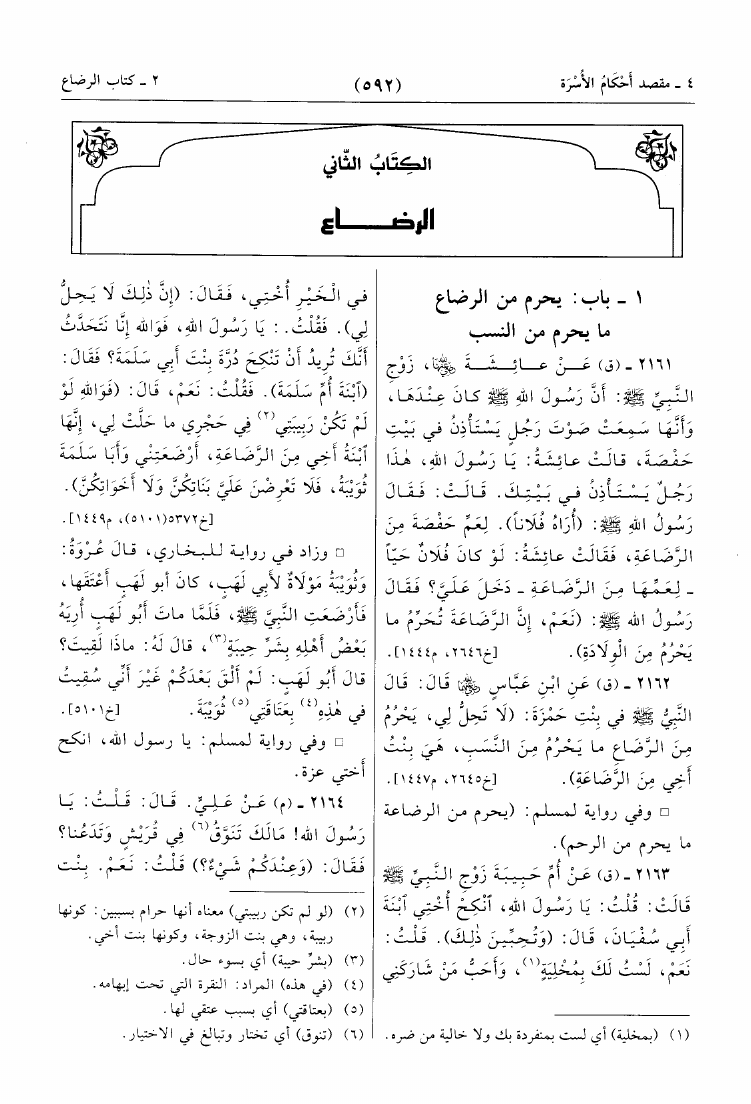 ٤ ـ مقصد أَحْكَامُ الأُسْرَة
(٥٩٢)
٢ ـ كتاب الرضاع
الكِتَابُ الثَّاني
الرضـــاع
١ ـ باب: يحرم من الرضاع
ما يحرم من النسب
٢١٦١ ـ (ق) عَـنْ عـائِشَـةَ رضي الله عنها، زَوْجِ
النَّبِيِّ ﷺ: أَنَّ رَسُولَ اللهِ ﷺ كانَ عِنْدَهَا،
وَأَنَّهَا سَمِعَتْ صَوْتَ رَجُلٍ يَسْتَأْذِنُ في بَيْتِ
حَفْصَةَ، قالَتْ عائِشَةُ: يَا رَسُولَ اللهِ، هٰذَا
رَجُلٌ يَسْتَأْذِنُ في بَيْتِكَ. قَالَتْ: فَقَالَ
رَسُولُ اللهِ ﷺ: (أُرَاهُ فُلَاناً). لِعَمِّ حَفْصَةَ مِنَ
الرَّضَاعَةِ، فَقَالَتْ عائِشَةُ: لَوْ كانَ فُلَانٌ حَيّاً
ـ لِعَمِّهَا مِنَ الرَّضَاعَةِ ـ دَخَلَ عَلَيَّ؟ فَقَالَ
رَسُولُ اللهِ ﷺ: (نَعَمْ، إِنَّ الرَّضَاعَةَ تُحَرِّمُ ما
يَحْرُمُ مِنَ الْوِلَادَةِ). [خ٢٦٤٦، م١٤٤٤].
٢١٦٢ ـ (ق) عَنِ ابْنِ عَبَّاسٍ رضي الله عنهما قَالَ: قَالَ
النَّبِيُّ ﷺ في بِنْتِ حَمْزَةَ: (لَا تَحِلُّ لِي، يَحْرُمُ
مِنَ الرَّضَاعِ ما يَحْرُمُ مِنَ النَّسَبِ، هِيَ بِنْتُ
أَخِي مِنَ الرَّضَاعَةِ). [خ٢٦٤٥، م١٤٤٧].
□ وفي رواية لمسلم: (يحرم من الرضاعة
ما يحرم من الرحم).
٢١٦٣ ـ (ق) عَنْ أُمِّ حَبِيبَةَ زَوْجِ النَّبِيِّ ﷺ
قَالَتْ: قُلْتُ: يَا رَسُولَ اللهِ، ٱنْكِحْ أُخْتِي ٱبْنَةَ
أَبِي سُفْيَانَ، قَالَ: (وَتُحِبِّينَ ذٰلِكَ). قُلْتُ:
نَعَمْ، لَسْتُ لَكَ بِمُخْلِيَةٍ(١)، وَأَحَبُّ مَنْ شَارَكَنِي
(١) (بمخلية) أي لست بمنفردة بك ولا خالية من ضره.
في الْخَيْرِ أُخْتِي، فَقَالَ: (إِنَّ ذٰلِكَ لَا يَحِلُّ
لِي). فَقُلْتُ.: يَا رَسُولَ اللهِ، فَوَاللهِ إِنَّا نَتَحَدَّثُ
أَنَّكَ تُرِيدُ أَنْ تَنْكِحَ دُرَّةَ بِنْتَ أَبِي سَلَمَةَ؟ فَقَالَ:
(ٱبْنَةَ أُمِّ سَلَمَةَ). فَقُلْتُ: نَعَمْ، قَالَ: (فَوَاللهِ لَوْ
لَمْ تَكُنْ رَبِيبَتِي(٢) فِي حَجْرِي ما حَلَّتْ لِي، إِنَّهَا
ٱبْنَةُ أَخِي مِنَ الرَّضَاعَةِ، أَرْضَعَتْنِي وَأَبَا سَلَمَةَ
ثُوَيْبَةُ، فَلَا تَعْرِضْنَ عَلَيَّ بَنَاتِكُنَّ وَلَا أَخَوَاتِكُنَّ).
[خ٥٣٧٢(٥١٠١)، م١٤٤٩].
□ وزاد في رواية للبخاري، قال عُرْوَةُ:
وَثُوَيْبَةُ مَوْلَاةٌ لأَبِي لَهَبٍ، كانَ أبو لَهَبٍ أَعْتَقَهَا،
فَأَرْضَعَتِ النَّبِيَّ ﷺ، فَلَمَّا ماتَ أَبُو لَهَبٍ أُرِيَهُ
بَعْضُ أَهْلِهِ بِشَرِّ حِيبَةٍ(٣)، قالَ لَهُ: ماذَا لَقِيتَ؟
قالَ أَبُو لَهَبٍ: لَمْ أَلْقَ بَعْدَكُمْ غَيْرَ أَنِّي سُقِيتُ
في هٰذِهِ(٤) بِعَتَاقَتِي(٥) ثُوَيْبَةَ. [خ٥١٠١].
□ وفي رواية لمسلم: يا رسول الله، انكح
أختي عزة.
٢١٦٤ ـ (م) عَنْ عَلِيٍّ. قَالَ: قُلْتُ: يَا
رَسُولَ اللهِ! مَالَكَ تَنَوَّقُ(٦) فِي قُرَيْشٍ وَتَدَعُنَا؟
فَقَالَ: (وَعِنْدَكُمْ شَيْءٌ؟) قُلْتُ: نَعَمْ. بِنْت
(٢) (لو لم تكن ربيبتي) معناه أنها حرام بسببين: كونها
ربيبة، وهي بنت الزوجة، وكونها بنت أخي.
(٣) (بشرِّ حيبة) أي بسوء حال.
(٤) (في هذه) المراد: النقرة التي تحت إبهامه.
(٥) (بعتاقتي) أي بسبب عتقي لها.
(٦) (تنوق) أي تختار وتبالغ في الاختيار.